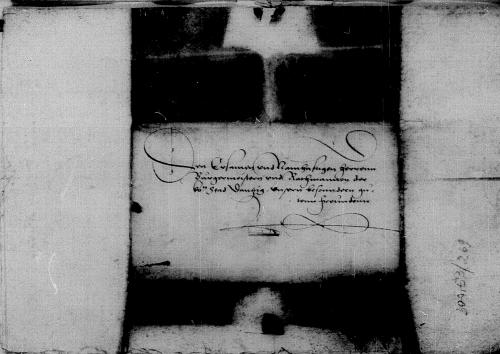 Den Ersamen und Namhafftigen Herrenn
Burgermeistern und Rathmannen der
Stad Dantzig unsern besundern gu-
tenn freundenn
300,53/269